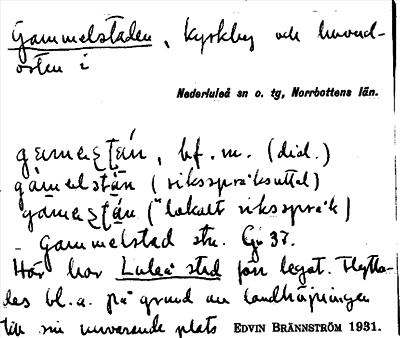 Gammelstaden, kyrkby och huvud-
orten i
Nederluleå sn o. tg, Norrbottens län.
bf. m. (dial.)
(riksspråksuttal)
("lokalt riksspråk)
Gammelstad stn. Gö 37.
Här har Luleå stad förr legat. Flytta-
des bl. a. på grund av landhöjningen
till sin nuvarande plats EDVIN BRÄNNSTRÖM 1931.